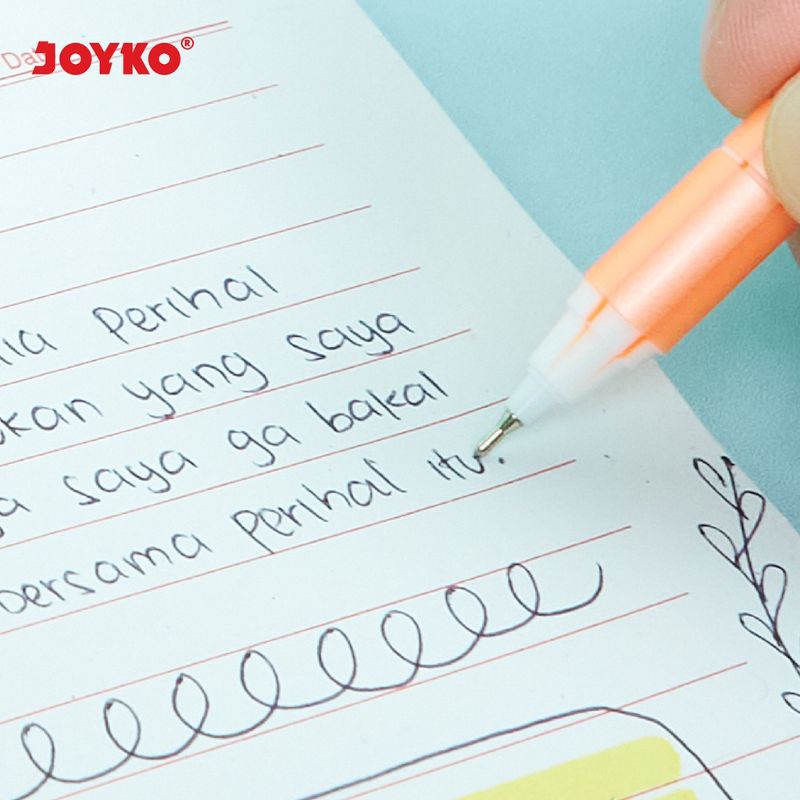 JOYKO®
Dat
perihal
kan yang saya
a saya ga bakal
bersama perihal itu.